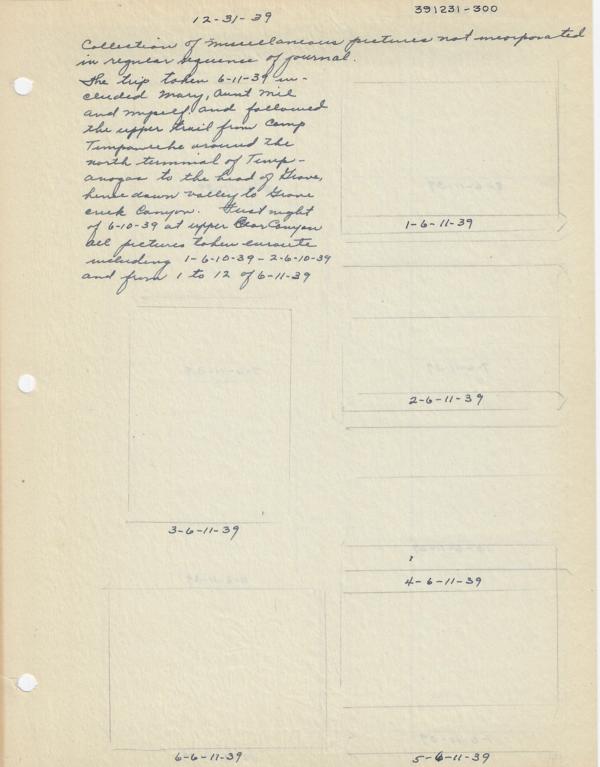 12-31-39
391231-300
Collection of miscellaneous pictures not incorporated
in regular sequence of journal.
The trip taken 6-11-39 in-
cluded Mary, Aunt Mil
and myself and followed
the upper trail from Camp
Timpanooke around the
north terminal of Timp-
anogas to the head of Grove,
hence down valley to Grove
creek Canyon. First night
of 6-10-39 at upper Bear Canyon
all pictures taken enroute
including 1-6-10-39 - 2-6-10-39
and from 1 to 12 of 6-11-39
1-6-11-39
2-6-11-39
3-6-11-39
4-6-11-39
6-6-11-39
5-6-11-39